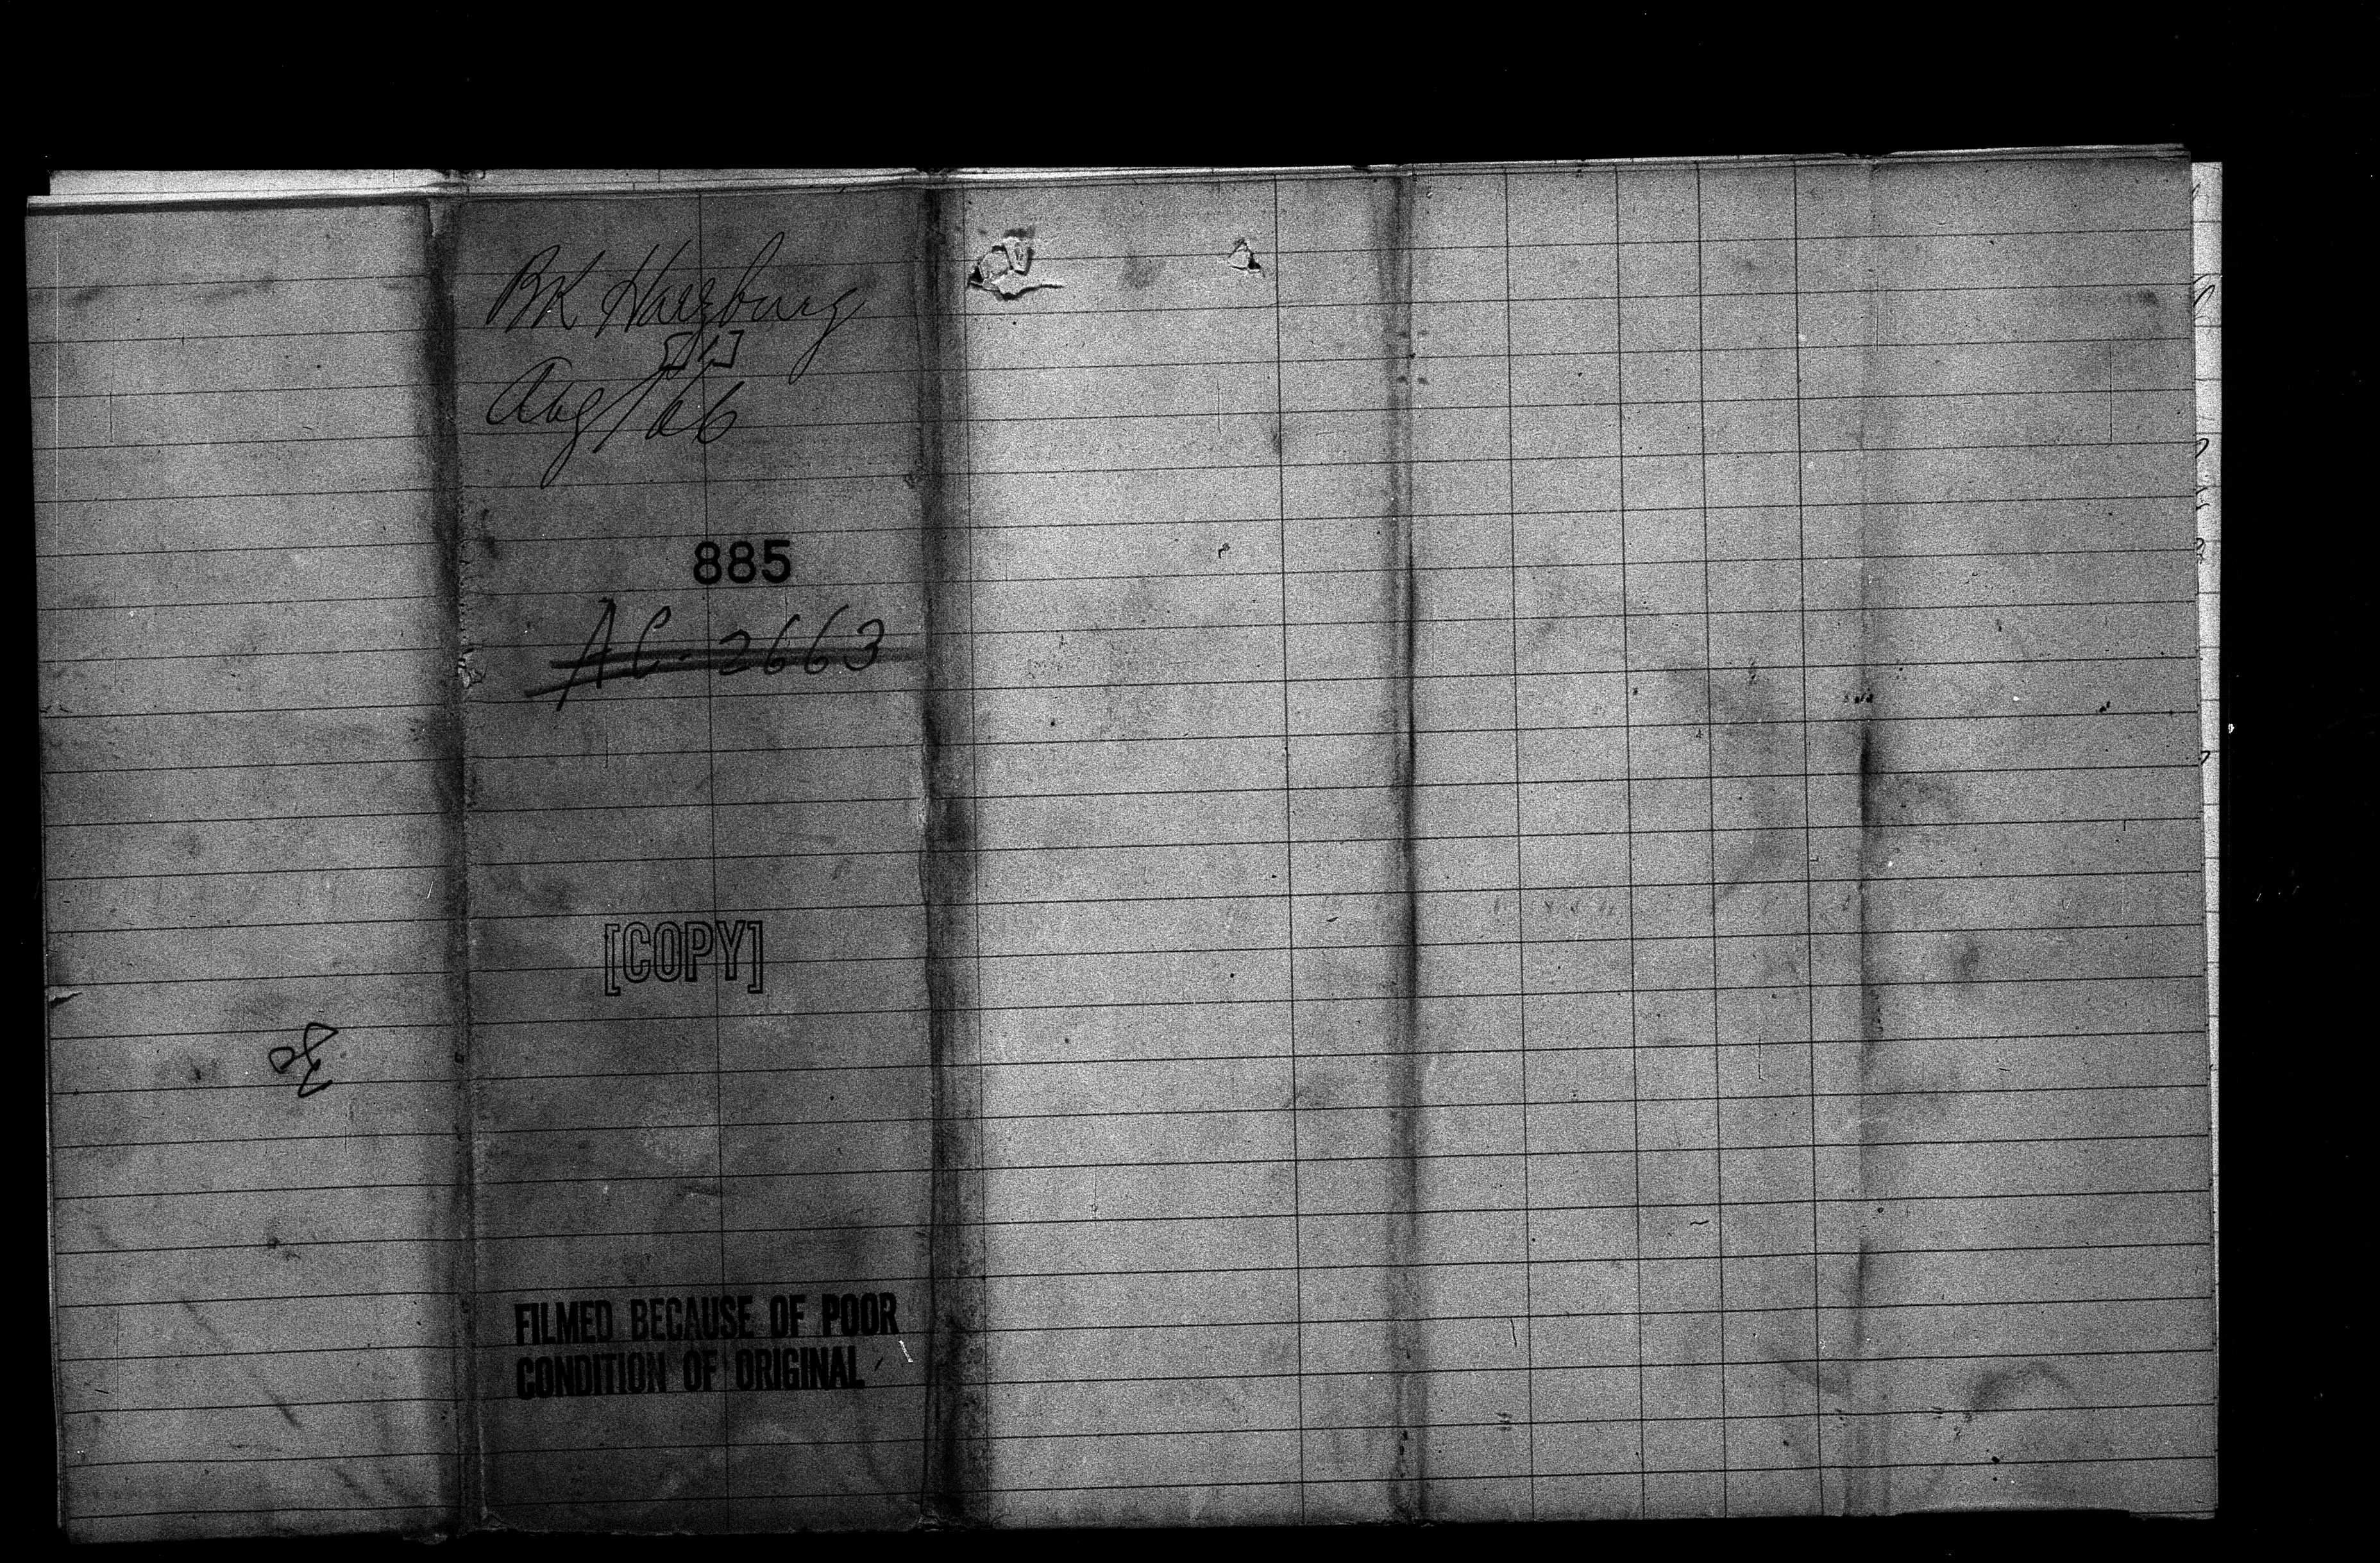 BK Harzburg
[1]
Aug/06
885
AC-2663
[COPY]
FILMED BECAUSE OF POOR
CONDITION OF ORIGINAL